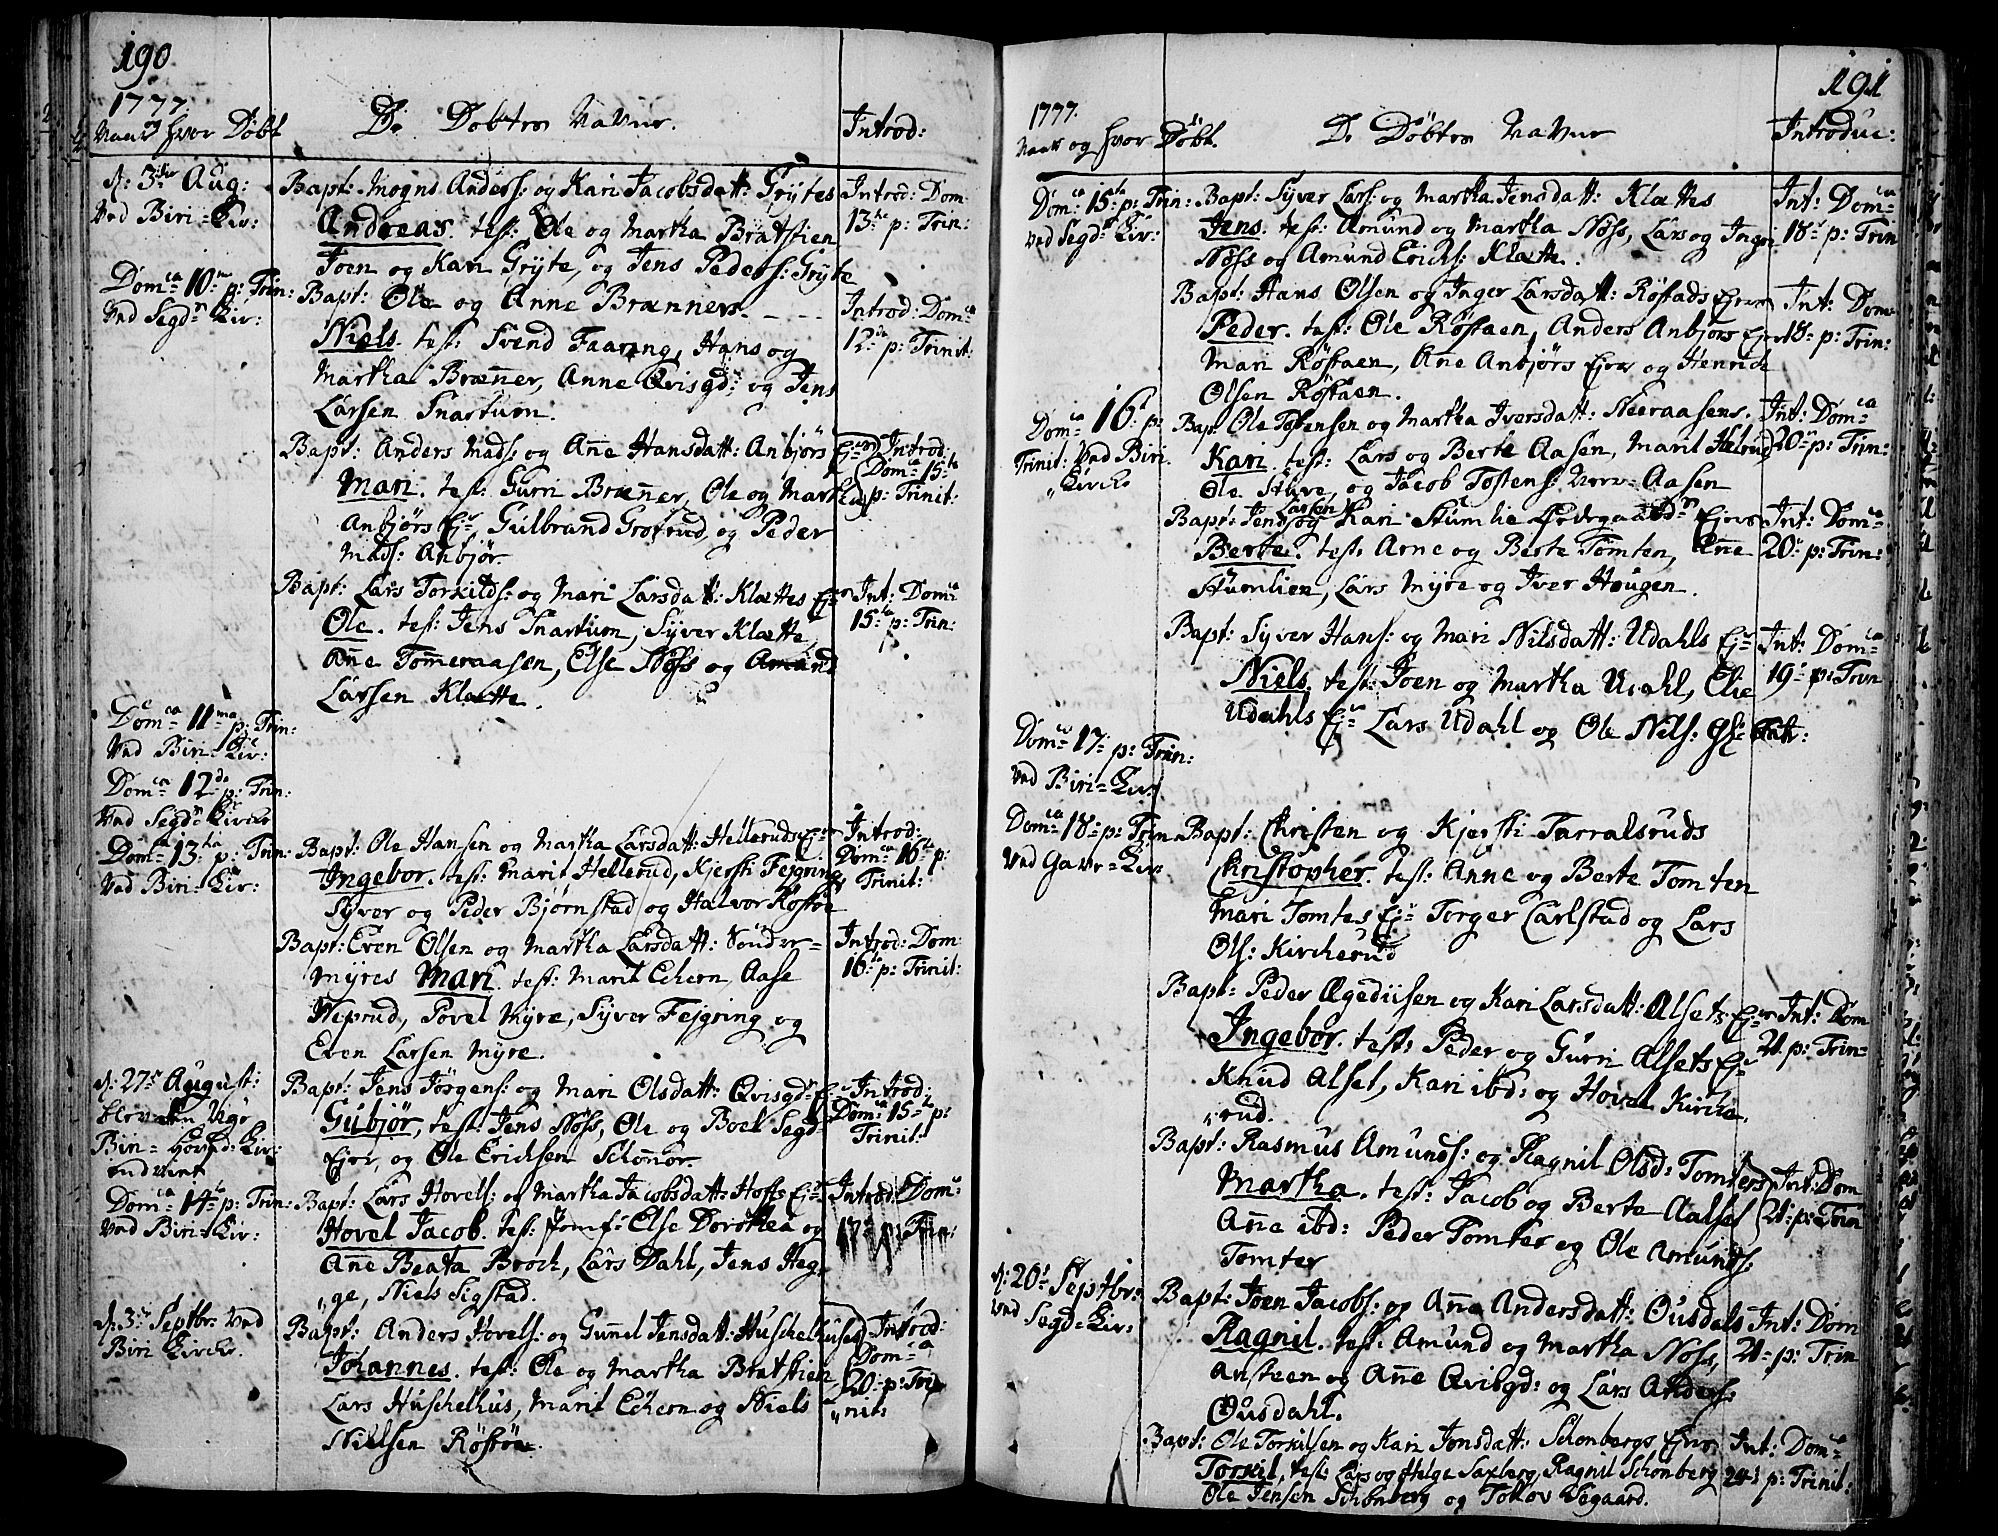 190
1777.
Naar og hvor Döbt
De Döbtes Nafne.
Introd:
d: 3die Aug:
Ved Biri-Kir:
Bapt: Mogns Anders: og Kari Jacobsdatt: Grytes
Andreas. test: Ole og Martha Bratstien
Joen og Kari Gryte, og Jens Peders: Gryte
Introd: Dom
13de p: Trin:
Domca 10ma p: Trin:
Ved Segdn Kir:
Bapt: Ole og Anne Brænners
Niels. test: Svend Faarøng, Hans og
Martha Bræner, Anne Qvisgd: og Jens
Larsen Snartum.
Introd: Domca
12te p: Trinit:
Bapt: Anders Mads: og Ane Hansdatt: Anbjørs Ejer
Mari. test: Gurri Bræner, Ole og Martha
Anbjørs Ejr, Gulbrand Grøtrud, og Peder
Mads: Anbjør.
Introd:
Domca 15ta
p: Trinit:
Bapt: Lars Torkilds: og Mari Larsdatt: Klættes Ejr
Ole. test: Jens Snartum, Syver Klætte
Ane Tomeraasen, Else Nöss og Amund
Larsen Klætte.
Int: Domca
15ta p: Trin:
Domca 11ma p: Trin:
Ved Biri-Kir:
Domca 12da p: Trin:
Ved Segd: Kirche
Domca 13tia p: Trin:
Ved Biri-Kir:
Bapt: Ole Hansen og Martha Larsdatt: Helleruds Ejr
Ingebor. test: Marit Hellerud, Kjersti Fejgring
Syver og Peder Bjørnstad og Halvor Röstöe
Introd:
Domca 16ta p:
Trinit:
Bapt: Even Olsen og Martha Larsdatt: Sönder-
myres Mari. test: Marit Echern, Aase
Neprud, Povel Myre, Syver Fejgring og
Even Larsen Myre.
Introd: Dom
16ta p: Trinit:
d: 27de August:
Biri- Hoved: Kir:
Bapt: Jens Jörgens: og Mari Olsdatt: Qvisgds Ejr
Gulbjör, test: Jens Nöss, Ole og Boel Segd-
Ejer, og Ole Ericksen Schönör.
Introd:
Domca 15ta p:
Trinit:
Domca 14ta p: Trin:
Ved Biri-Kir:
Bapt: Lars Hovels: og Martha Jacobsdatt: Hoffs Ejr
Hovel Jacob. test: Jomf: Else Dorothea og
Ane Beata Broch, Lars Dahl, Jens Heg-
„ge, Niels Sigstad.
Introd: Domca
17da p: Trin:
d: 3de Septbr: Ved
Biri Kirche.
Bapt: Anders Hovels: og Gunel Jensdatt: Huschelhuses
Johannes. test: Ole og Martha Bratstien
Lars Huschelhus, Marit Echern og Niels
Nielsen Röstöe.
Introd:
Domca
20: p: Tri-
„nit:
191
1777.
Naar og hvor Döbt.
De Döbtes Nafne
Introduc:
Domca 15ta p: Trin:
Ved Segdn Kir:
Bapt: Syver Lars: og Martha Jensdatt: Klættes
Jens. test: Amund og Martha Nöss, Lars og Ingri
Nöss og Amund Ericks: Klætte.
Int: Domca
18: p: Trin
Bapt: Hans Olsen og Inger Larsdatt: Röstads Ejeren
Peder. test: Ole Röstaen, Anders Anbjörs Ejer
Mari Röstaen, Ane Anbjörs Ejer og Henrich
Olsen Röstaen.
Int: Domca
18: p: Trin:
Domca 16: p:
Trinit: Ved Biri.
„Kirch.
Bapt: Ole Tostensen og Martha Iversdatt: Neeraasens.
Kari. test: Lars og Berte Aasen, Marit Helrud
Ole Stuve, og Jacob Tostens: Neer-Aasen
Int: Domca
20: p: Trin:
Bapt: Jens Larsen og Kari Stumlie Ødegaards Ejers
Berte. test: Arne og Berte Tömten, Ane
Stumlien, Lars Myre og Iver Hougen.
Int: Domca
20: p: Trin:
Bapt: Syver Hans: og Mari Nilsdatt: Udahls Ejr
Niels. test: Joen og Martha Udahl, Elie
Udahls Ejr Lars Udahl og Ole Nils:
Int: Domca
19: p: Trin
Domca 17: p: Trin:
Ved Biri-Kir:
Domca 18: p: Trin
Ved Gavr-Kir:
Bapt: Christen og Kjersti Tarralsruds
Christopher. test: Anne og Berte Tomten
Mari Tomtes Ejr Torger Carlstad og Lars
Ols: Kircherud
Bapt: Peder Ægediisen og Kari Larsdatt: Alsets Ejr
Ingebor. test: Peder og Gurri Alsets Ejr
Knud Alset, Kari ibd: og Hovel Kirche
„rud.
Int: Dom
21 p: Trin-
Bapt: Rasmus Amunds: og Ragnil Olsd: Tomters
Martha. test: Jacob og Berte Aalset
Ane ibd: Peder Tomter og Ole Amunds:
Tomter
Int: Dom
21: p: Trin
d: 20de Septbr:
Ved Segd-Kir:
Bapt: Joen Jacobs: og Ane Andersdatt: Ousdals
Ragnil. test: Amund og Martha Nöss,
Ansteen og Ane Qvisgd: og Lars Anders:
Ousdahl.
Int: Dom
21: p: Trin
Bapt: Ole Torkilsen og Kari Jonsdatt: Schonbergs Ejer
Torkil, test: Lars og Helge Saxberg, Ragnil Schonberg
Ole Jensen Schonberg og Tollov Vegaard.
Int: Domca
24: p: Trinit: